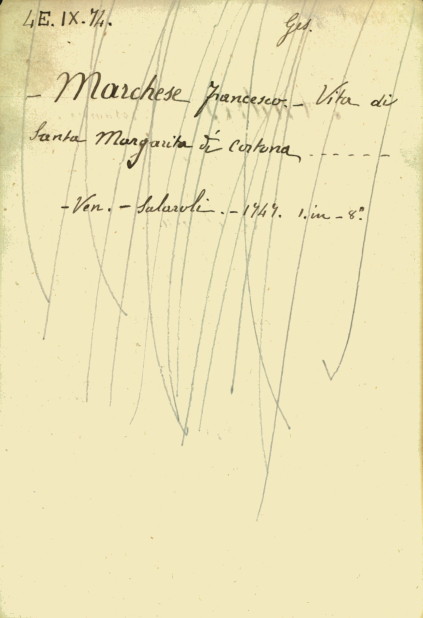 4E. IX. 74. Ges.
- Marchese Francesco. - Vita di
Santa Margarita di Cortona ------
- Ven. - Salaroli. - 1747. 1. in - 8.º